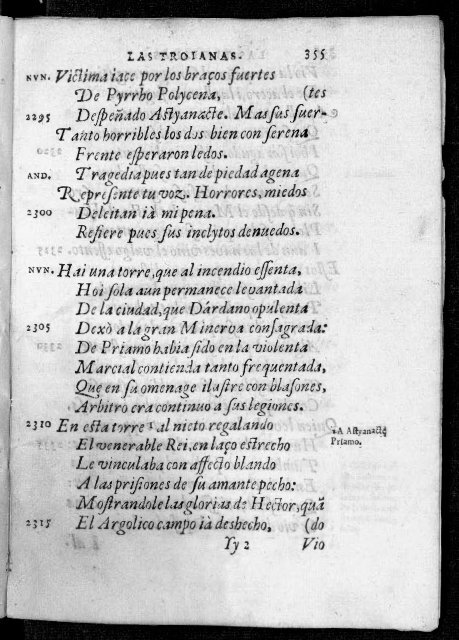 LAS TROIANAS. 355
NVN. Victima iace por los braços fuertes
De Pyrrho Polycena, (tes
2295 Despeñado Astyanacte. Mas sus suer-
Tanto horribles los dos bien con serena
Frente esperaron ledos.
AND. Tragedia pues tan de piedad agena
Represente tu voz. Horrores, miedos
2300 Deleitan ià mi pena.
Refiere pues sus inclytos denuedos.
NVN. Hai una torre, que al incendio essenta,
Hoi sola aun permanece levantada
De la ciudad, que Dárdano opulenta
2305 Dexò a la gran Minerva consagrada:
De Priamo habia sido en la violenta
Marcial contienda tanto frequentada,
Que en su omenage ilustre con blasones,
Arbitro era continuo a sus legiones.
2310 En esta torre 1 al nieto regalando
1 A Astyanacte
El venerable Rei, en laço estrecho
Priamo.
Le vinculaba con affecto blando
A las prisiones de su amante pecho:
Mostrandole las glorias de Hector, quã
2315 El Argolico campo ià deshecho, (do
Yy 2 Vio